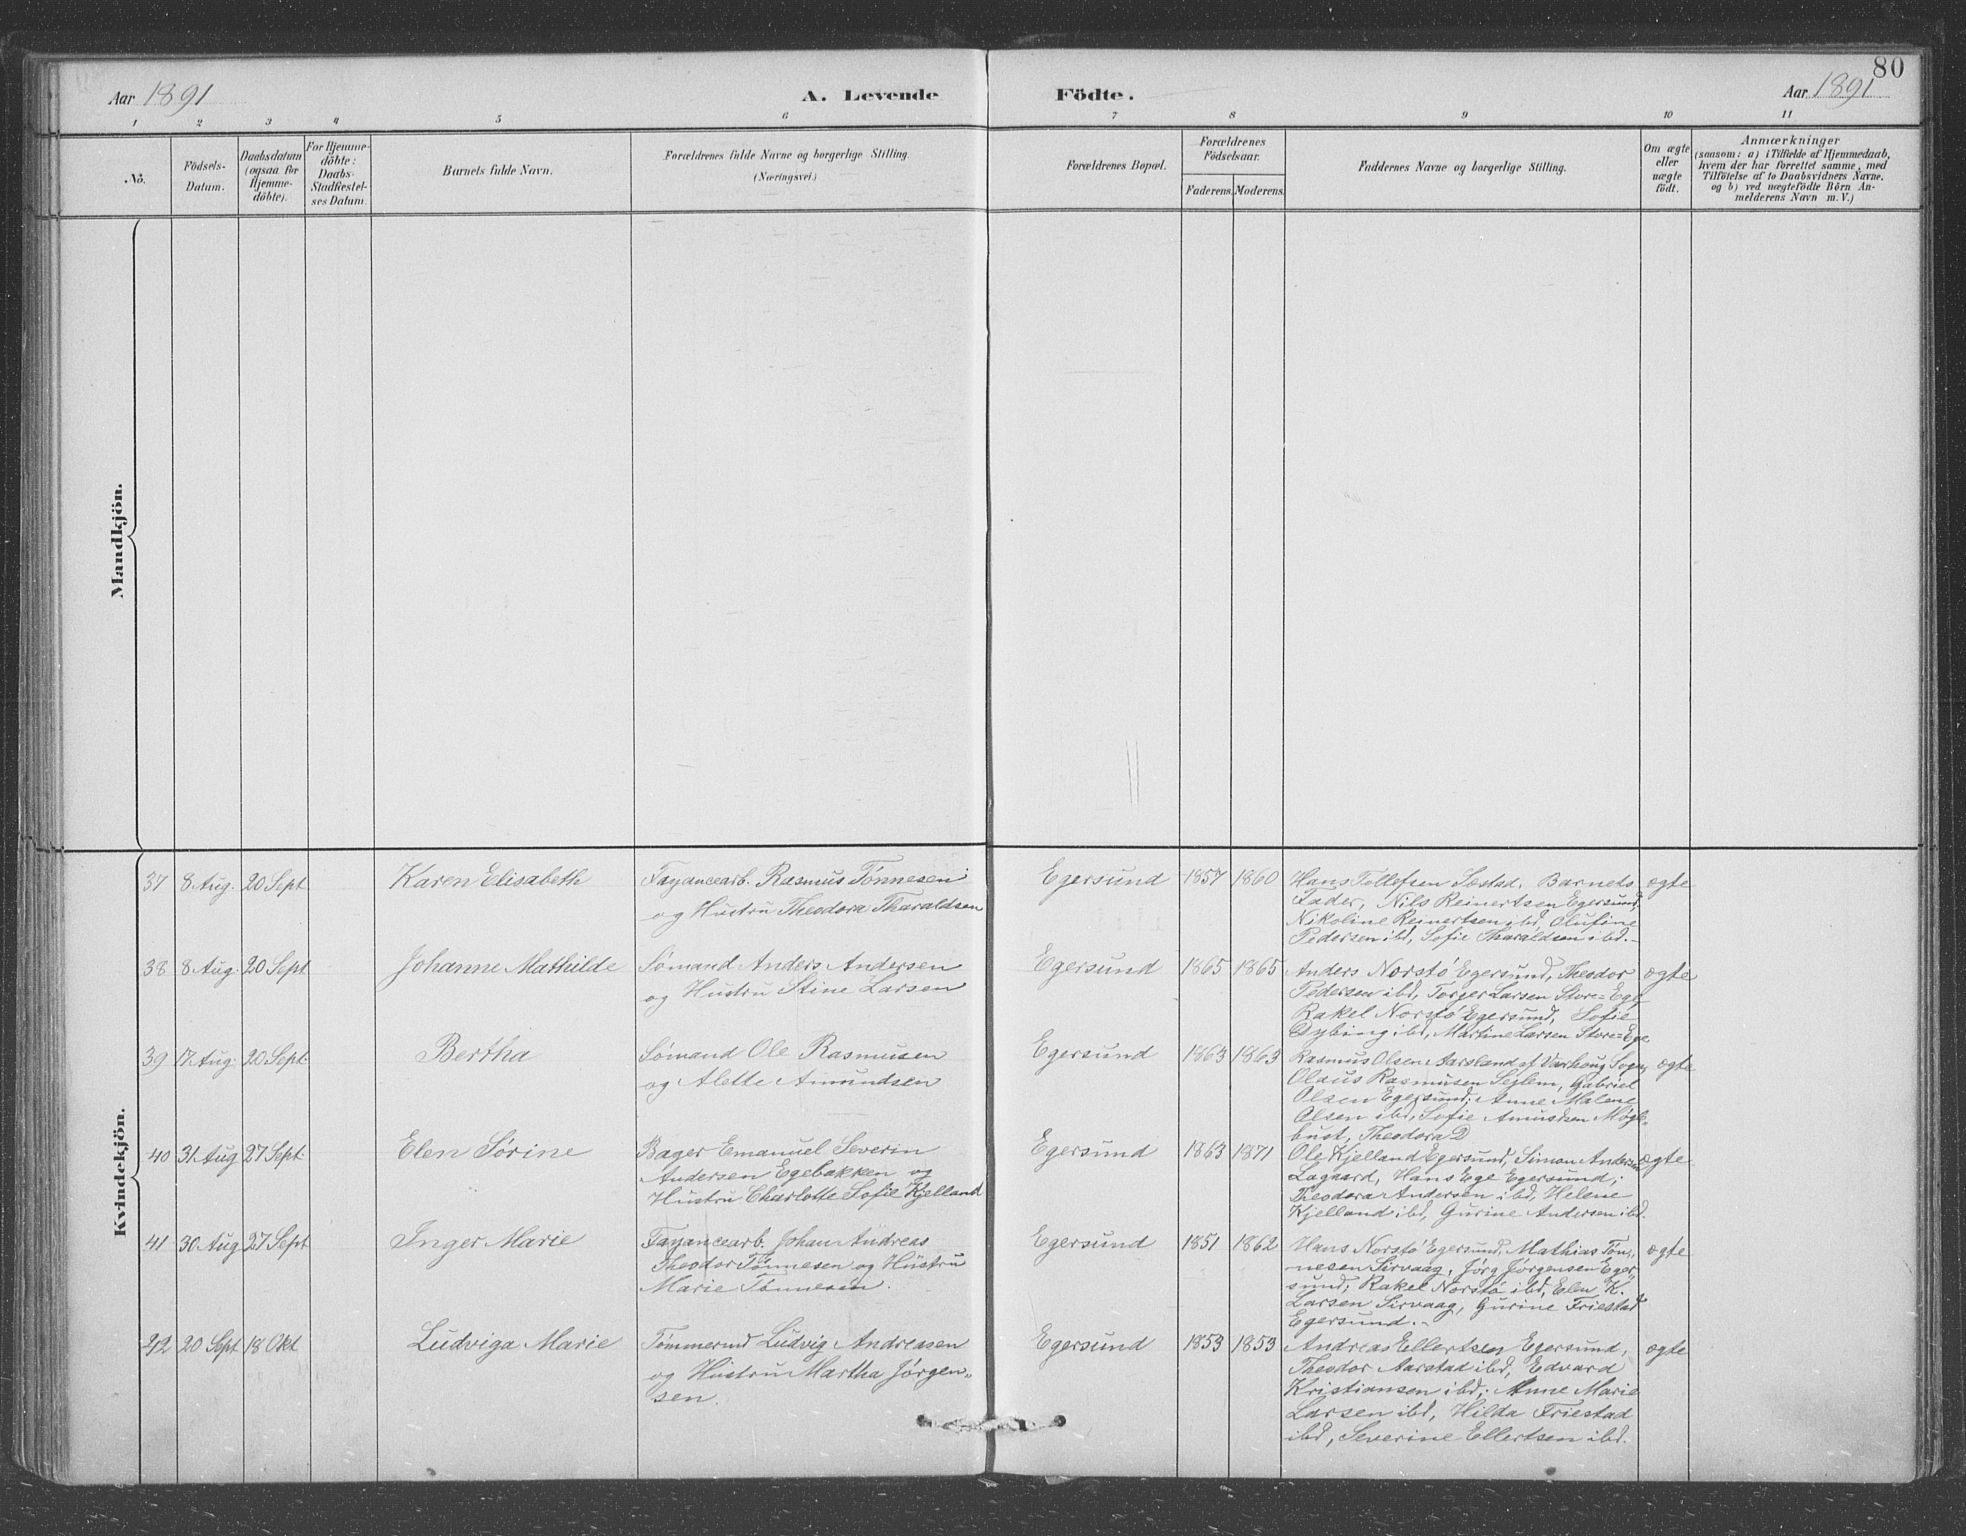 80
Aar 1891 A. Levende Födte. Aar 1891
1 2 3 4 5 6 7 8 9 10 11
No.
Födsels-
Datum.
Daabsdatum
(ogsaa for
Hjemme-
döbte).
For Hjemme-
döbte:
Daabs-
Stadfæstel-
ses Datum.
Barnets fulde Navn.
Forældrenes fulde Navne og borgerlige Stilling.
(Næringsvei.)
Forældrenes Bopæl.
Forældrenes
Födselsaar.
Faderens. Moderens.
Faddernes Navne og borgerlige Stilling.
Om ægte
eller
uægte
födt.
Anmærkninger
(saasom: a) i Tilfælde af Hjemmedaab,
hvem der har forrettet samme, med
Tilföielse af to Daabsvidners Navne.
og b) ved uægtefödte Börn An-
melderens Navn m. V.)
Mandkjön.
Kvindekjön.
37 8 Aug. 20 Sept Karen Elisabeth
Fayancearb. Rasmus Tønnesen
og Hustru Theodora Tharaldsen
Egersund 1857 1860
Hans Tollefsen Sæstad, Barnets
Fader, Nils Reinertsen Egersund,
Nikoline Reinertsen ibd, Olufine
Pedersen ibd, Sofie Tharaldsen ibd.
ægte
38 8 Aug. 20 Sept Johanne Mathilde
Sømand Anders Andersen
og Hustru Stine Larsen
Egersund 1865 1865
Anders Norstø Egersund, Theodor
Pedersen ibd, Torger Larsen Store=Ege
Rakel Norstø Egersund, Sofie
Dybing ibd, Martine Larsen Store=Ege
ægte
39 17 Aug. 20 Sept. Bertha
Sømand Ole Rasmusen
og Alette Amundsen
Egersund 1863 1863
Rasmus Olsen Aarsland af Varhoug Sogn,
Olaus Rasmusen Sejlem, Gabriel
Olsen Egersund, Anne Malene
Olsen ibd, Sofie Amundsen Møgle-
bust, Theodora D
ægte
40 31. Aug 27 Sept. Elen Sørine
Bager Emanuel Severin
Andersen Egebakken og
Hustru Charlotte Sofie Kjelland
Egersund 1863 1871
Ole Kjelland Egersund, Simon Andersen
Lagaard, Hans Ege Egersund,
Theodora Andersen ibd, Helene
Kjelland ibd, Gurine Andersen ibd.
ægte
41 30 Aug 27 Sept Inger Marie
Fayancearb. Johan Andreas
Theodor Tønnesen og Hustru
Marie Tønnesen.
Egersund 1851 1862
Hans Norstø Egersund, Mathias Tøn-
nesen Sirvaag, Jørg Jørgensen Eger-
sund, Rakel Norstø ibd, Elen K.
Larsen Sirvaag, Gurine Friestad
Egersund.
ægte
42 20 Sept 18 Okt Ludviga Marie
Tømmermd Ludvig Andreasen
og Hustru Martha Jørgen-
sen.
Egersund 1853 1853
Andreas Ellertsen Egersund,
Theodor Aarstad ibd, Edvard
Kristiansen ibd, Anne Marie
Larsen ibd, Hilda Friestad
ibd, Severine Ellertsen ibd.
ægte